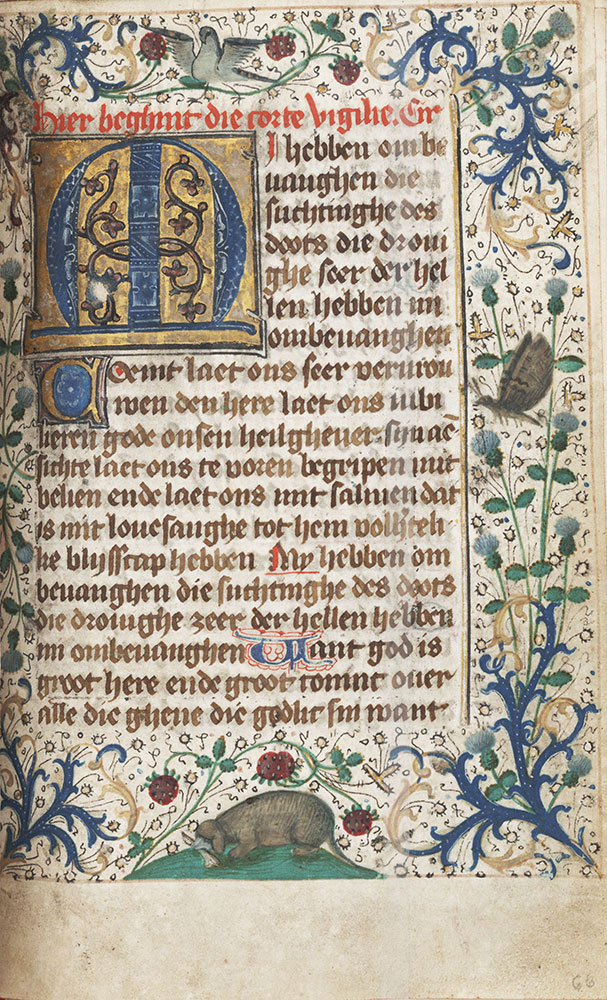 hier beghint die corte vigilie. Er
MI hebben ombe
uaughen die
suchtinghe des
doots die droui
ghe seer der hel
len hebben mi
ombeuanghen
Coemt laet ons seer vervrou
wen den here laet ons iubi
lieren gode onsen heilgheuer. sijn ac
sichte laet ons te voren begripen mit
belien ende laet ons mit salmen dat
is mit louesanghe tot hem vollijcli
ke blijsscap hebben My hebben om
beuanghen die suchtinghe des doots
die drouighe zeer der hellen hebben
mi ombeuanghen Want god is
groot here ende groot comnt ouer
alle die ghene die godlic sin want
66